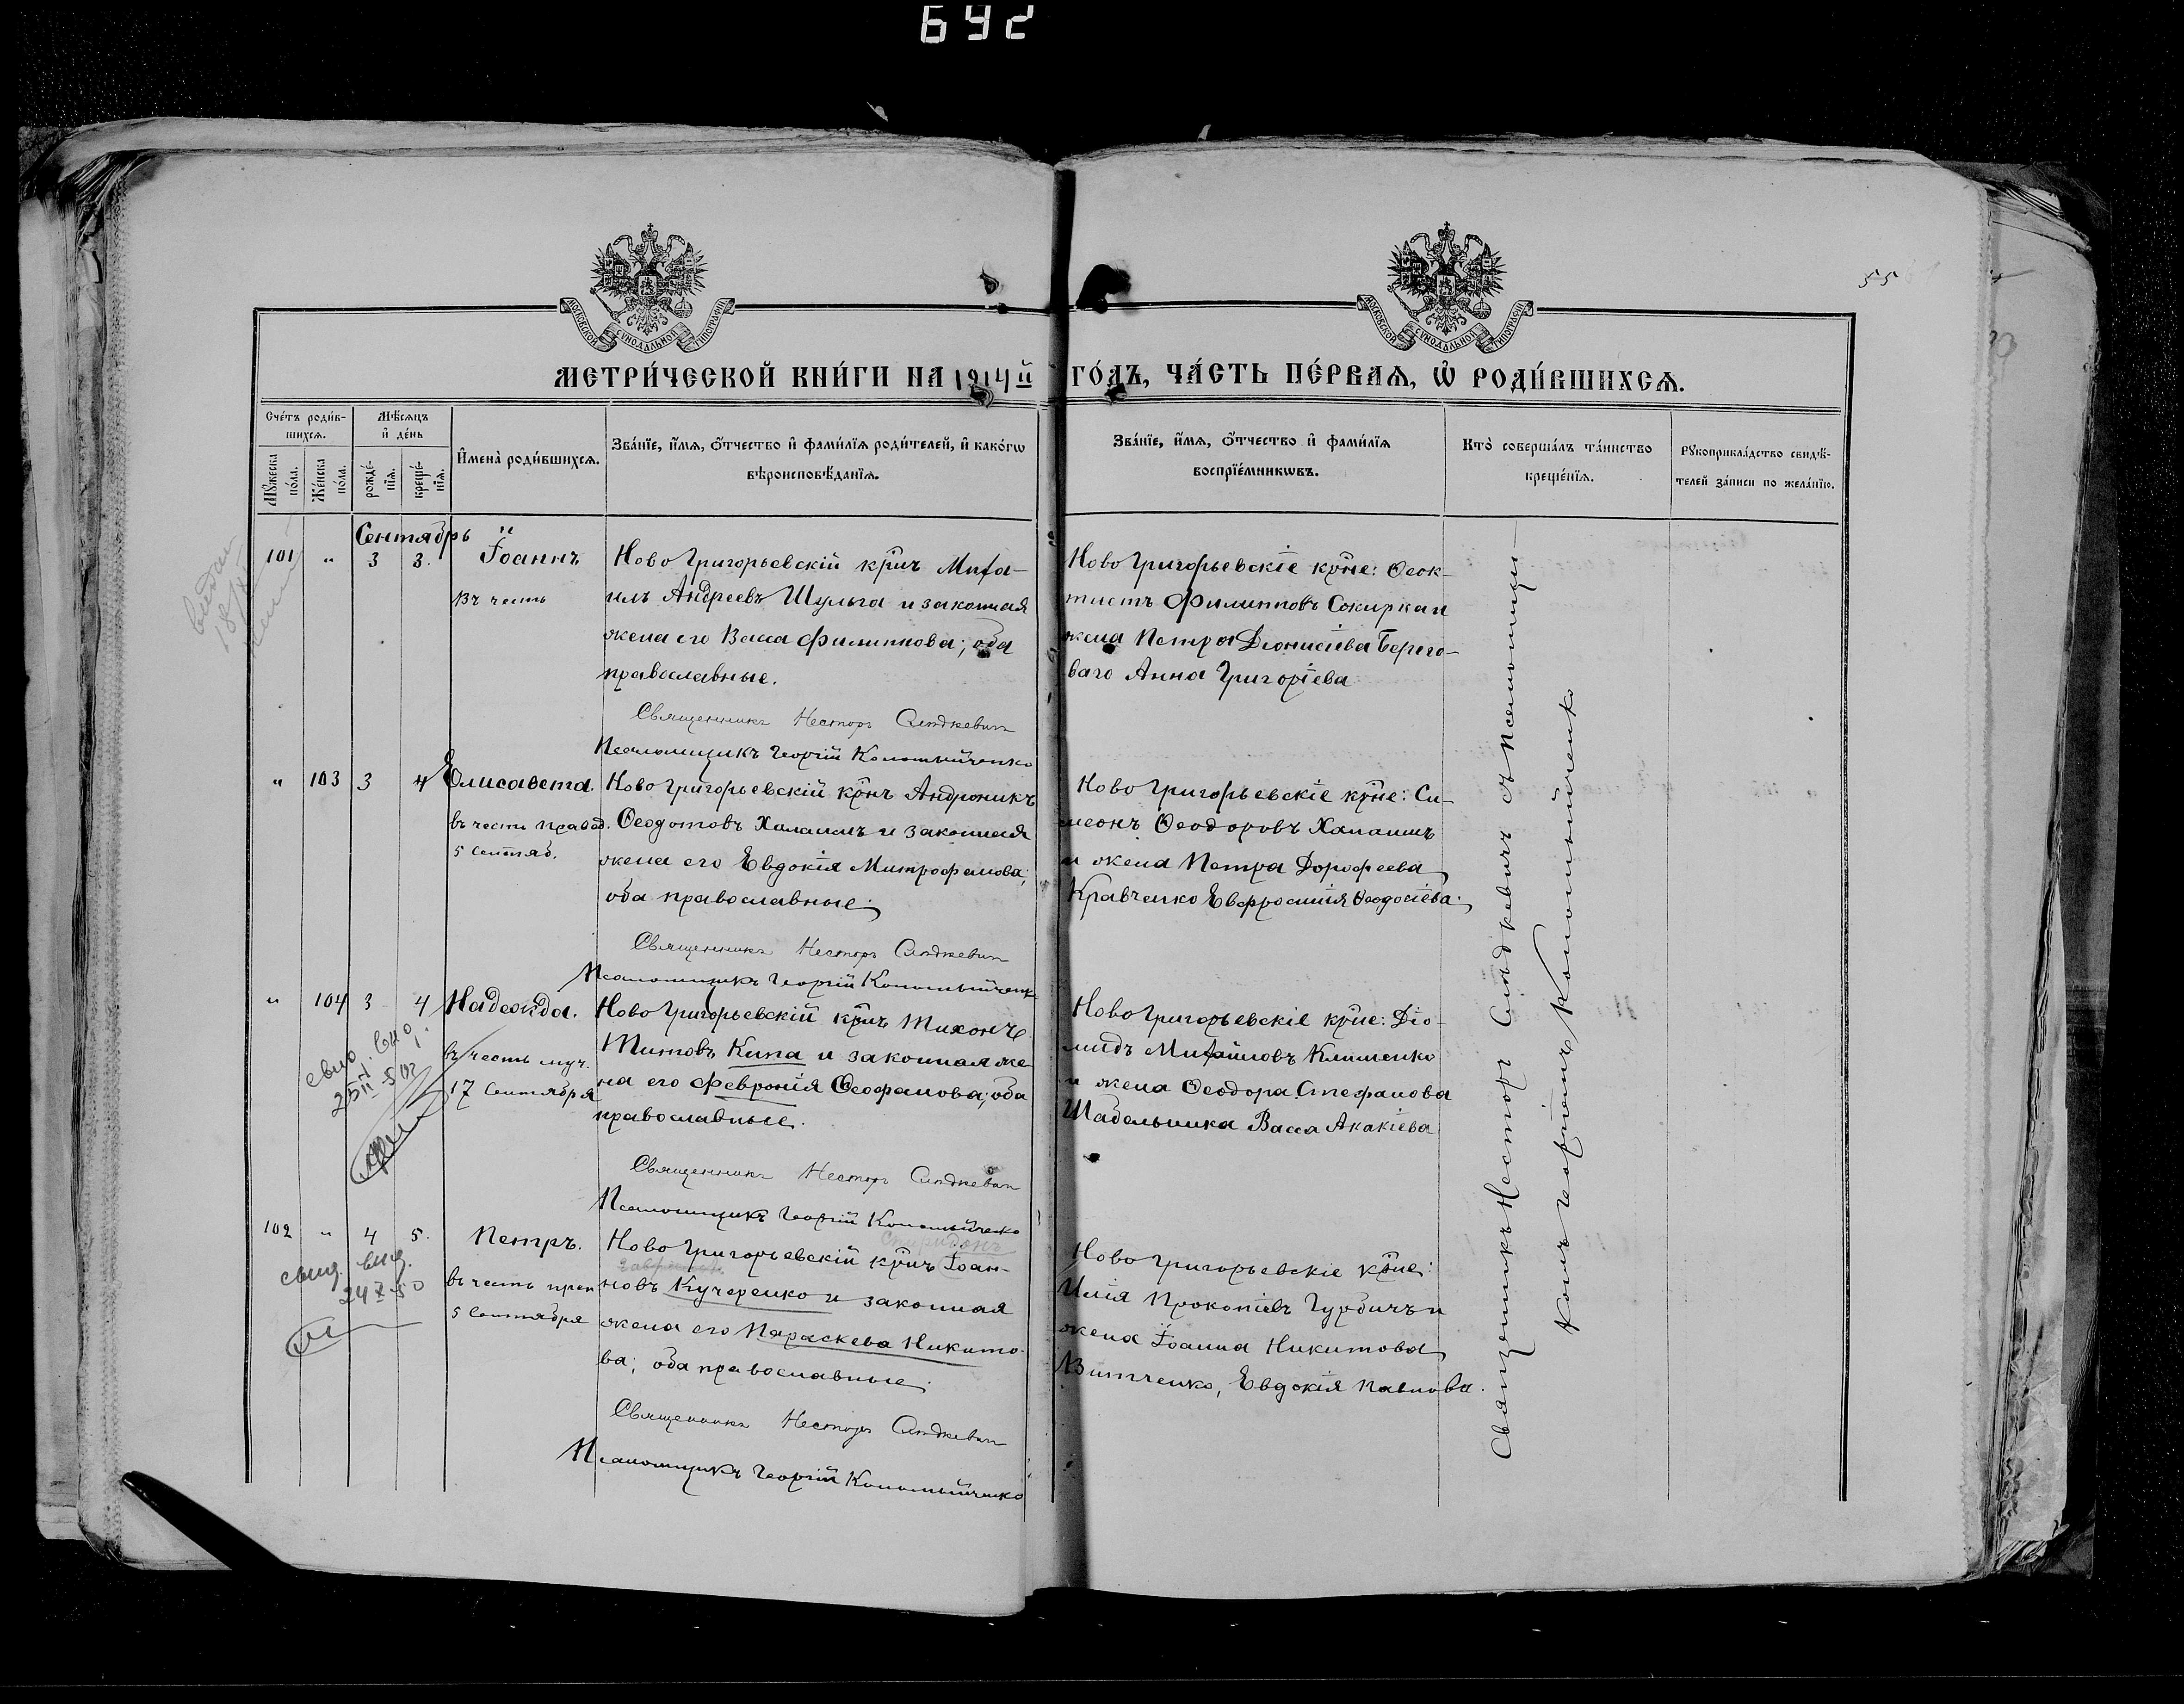 692
55
МОСКОВСКОЙ СѴНОДАЛЬНОЙ ТИПОГРАФІИ
МОСКОВСКОЙ СѴНОДАЛЬНОЙ ТИПОГРАФІИ
МЕТРИ́ЧЕСКОЙ КНИ́ГИ НА 1914й ГО́ДЪ, ЧА́СТЬ ПЕ́РВАѦ, Ѡ҆ РОДИ́ВШИХСѦ.
Сче́тъ роди́в-
шихсѧ.
Мꙋ́жеска по́ла.
Же́нска по́ла.
Мѣ́сѧцъ
и҆ де́нь
рожде́-нїѧ.
креще́-нїѧ.
И҆мена̀ роди́вшихсѧ.
Зва́нїе, и҆́мѧ, ѻ҆́тчество и҆ фами́лїѧ роди́телей, и҆ како́гѡ
вѣроисповѣ́данїѧ.
Зва́нїе, и҆́мѧ, ѻ҆́тчество и҆ фами́лїѧ
воспрїе́мникѡвъ.
Кто̀ соверша́лъ та́инство
креще́нїѧ.
Рꙋкоприкла́дство свидѣ́-
телей за́писи по жела́нїю.
Сентябрь
101 " 3 3. Іоаннъ
въ честь
Ново Григорьевскій крнъ Миха-
илъ Андреевъ Шульга и законная
жена его Васса Филиппова; оба
православные.
Священникъ Несторъ Сендкевич
Псаломщикъ Георгій Коломыйченко
Ново Григорьевскіе крне: Ѳеок-
тистъ Филипповъ Сокирка и
жена Петра Діонисіева Берего-
ваго Анна Григоріева
" 103 3 4 Елисавета.
въ честь правед.
5 Сентяб.
Ново Григорьевскій крнъ Андроникъ
Ѳеодотовъ Халамъ и законная
жена его Евдокія Митрофанова;
оба православные.
Священникъ Несторъ Сендкевич
Псаломщикъ Георгій Коломыйченко
Ново Григорьевскіе крне: Си-
меонъ Ѳеодоровъ
и жена Петра Дорофеева
Кравченко Евфросинія Ѳеодосіева.
" 104 3 4 Надежда.
въ честь муч.
17 Сентября
Ново Григорьевскій крнъ Тихонъ
Титовъ Кипа и законная же
на его Февронія Ѳеофанова; оба
православные.
Священникъ Несторъ Сендкевич
Псаломщикъ Георгій Коломыйченко
Ново Григорьевскіе крне: Діо-
мидъ Михайловъ Клименко
и жена Ѳеодора Стефанова
Шабельника Васса Акакіева
102 " 4 5. Петръ.
въ честь преп
5 Сентября
свид.
24 X 50
Спиридонъ
Ново Григорьевскій крнъ Іоан-
новъ Кучеренко и законная
жена его Параскева Никито-
ва; оба православные.
Священникъ Несторъ Сендкевич
Псаломщикъ Георгій Коломыйченко
Ново Григорьевскіе крне:
Илія Прокопіевъ Гурбичъ и
жена Іоанна Никитова
Витченко, Евдокія Павлова.
Священникъ Несторъ Сендкевичъ съ псаломщи-
комъ Георгіемъ Коломыйченко